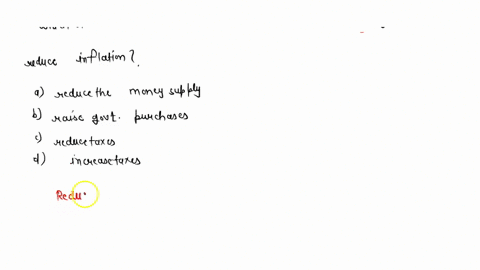 reduce inflation?
a) reduce the money supply
b) raise govt. purchases
c) reduce taxes
d) increase taxes
Redu